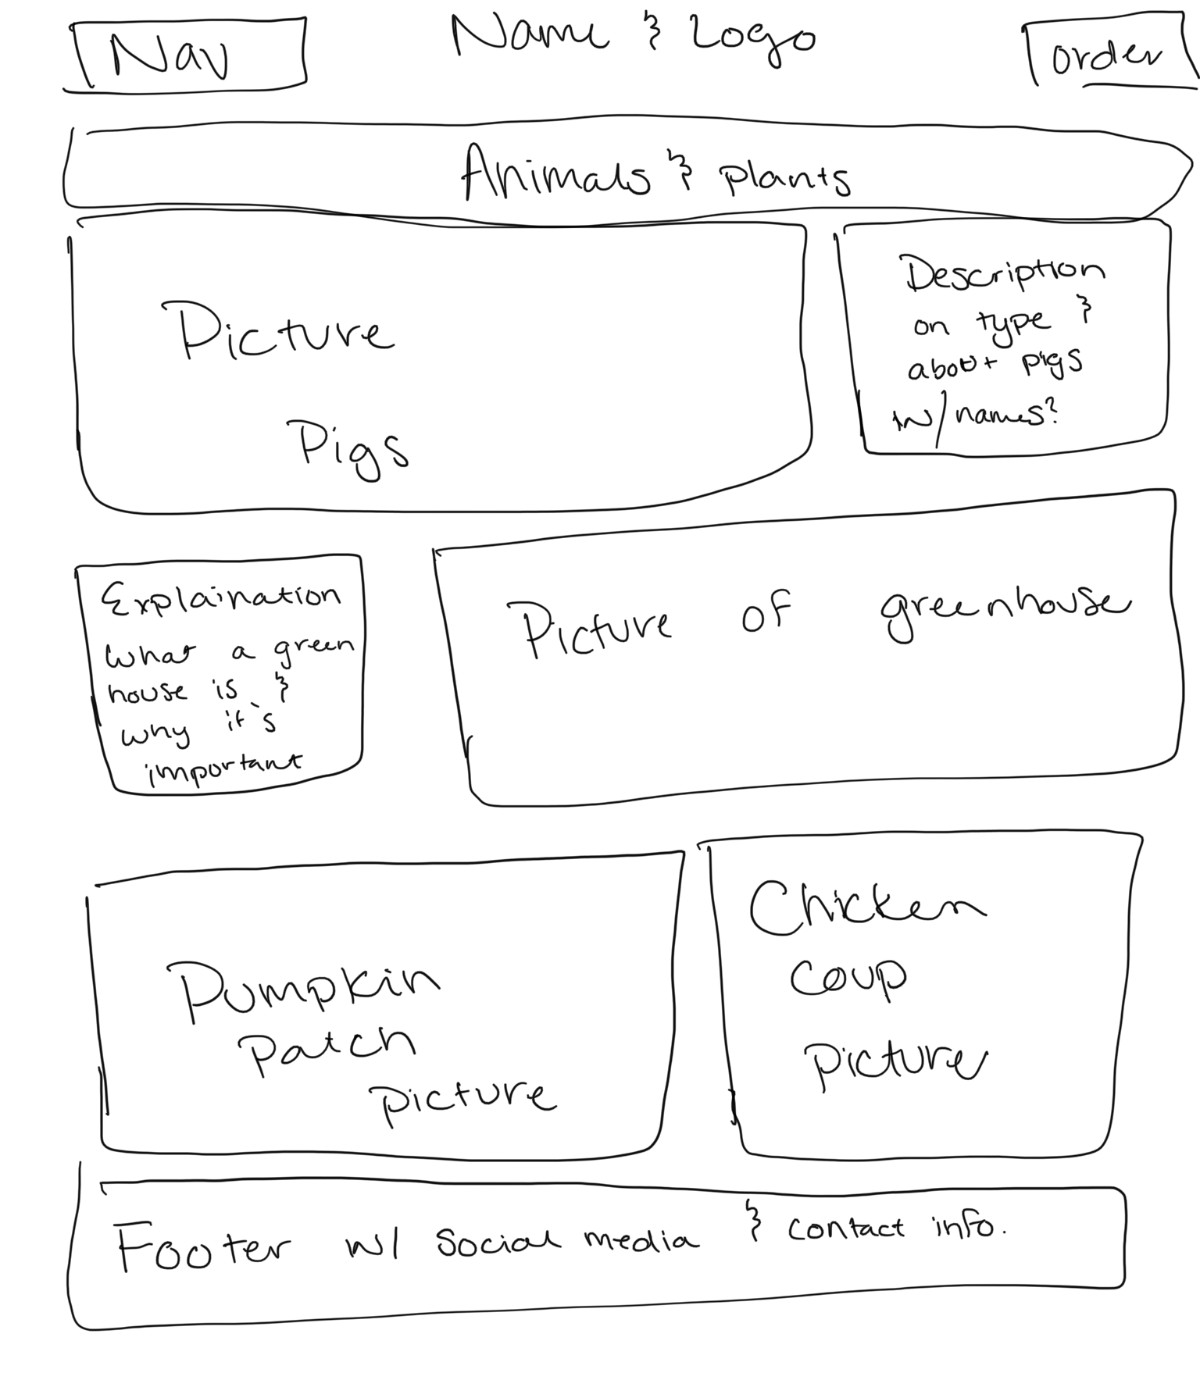 Nav
Name & Logo
order
Animals & plants
Picture
Pigs
Description
on type &
about pigs
w/names?
Explaination
what a green
house is &
why it's
important
Picture of greenhouse
Pumpkin
Patch
picture
Chicken
coup
picture
Footer w/ social media & contact info.